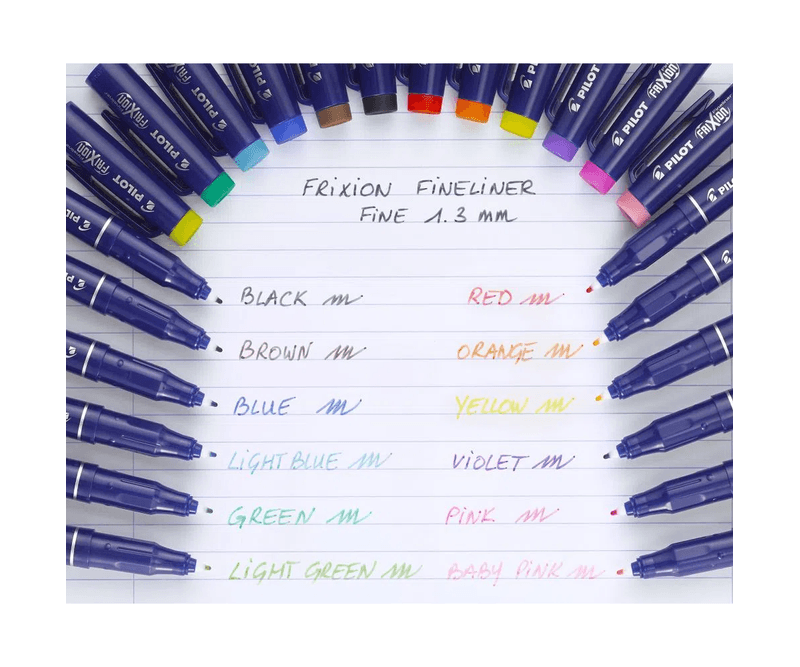 FRIXION FINELINER
FINE 1.3 mm
BLACK
BROWN
BLUE
LIGHT BLUE
GREEN
LIGHT GREEN
RED
ORANGE
YELLOW
VIOLET
PINK
BABY PINK
PILOT FRIXION
PILOT FRIXION
PILOT FRIXION
PILOT
PILOT
PILOT
PILOT FRIXION
PILOT FRIXION
PILOT
PILOT